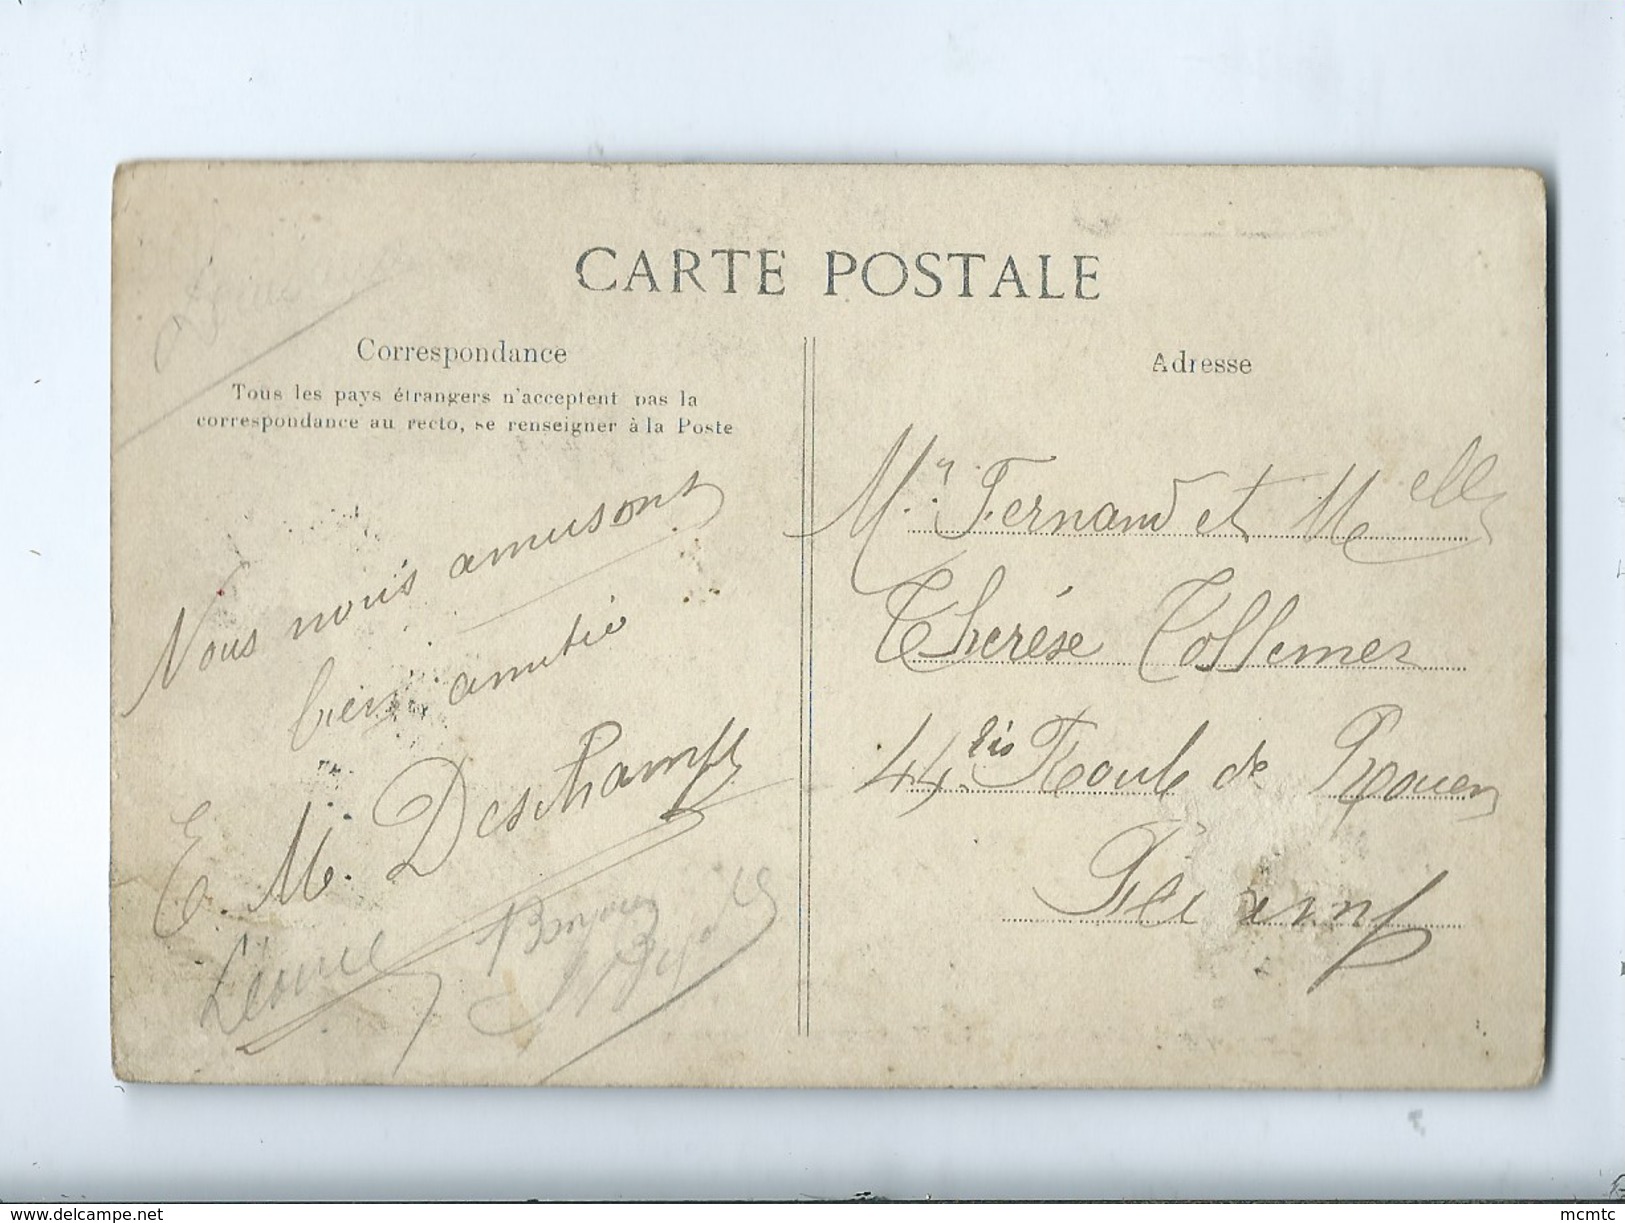 CARTE POSTALE
Correspondance
Tous les pays étrangers n'acceptent pas la
correspondance au recto, se renseigner à la Poste
Nous nous amusons
bien amitié
E. M. Deschamps
Léonie
Bonjour
Adresse
Mr. Fernand et Melle
Thérèse Tollemer
44 bis Route de Rouen
Fécamp
www.delcampe.net
mcmtc